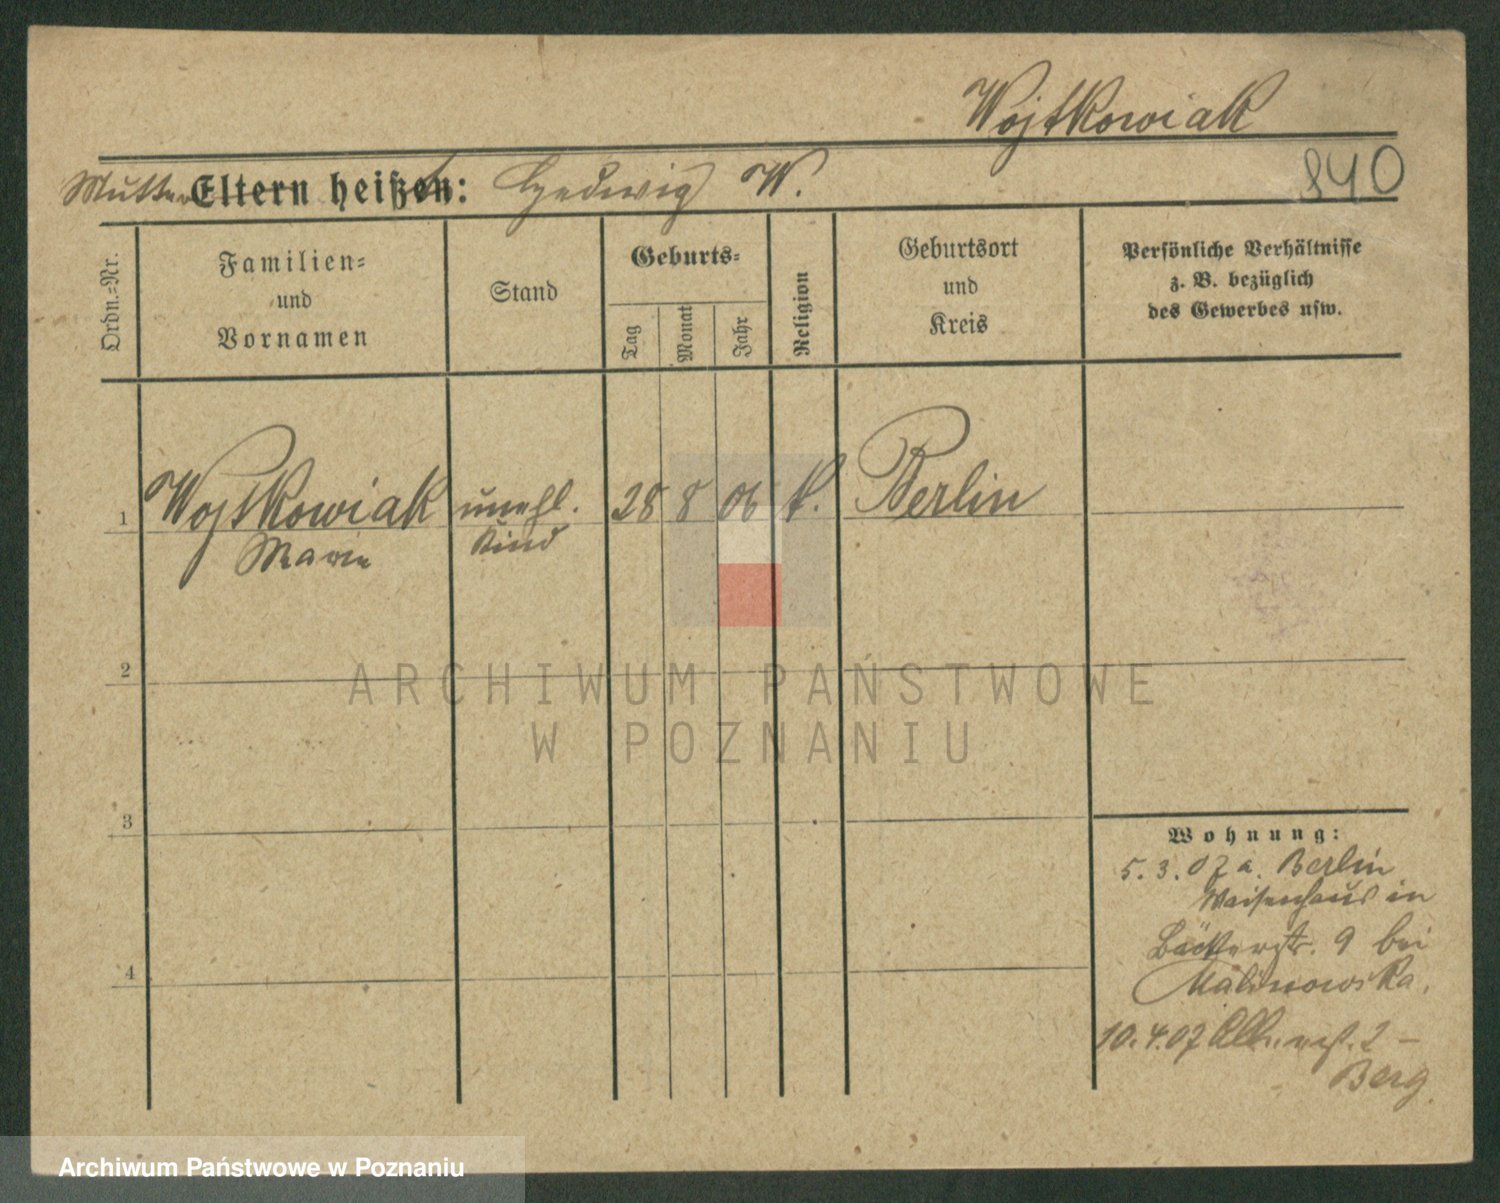 Wojtkowiak
840
Mutter Eltern heißen: Hedwig W.
Ordn.=Nr.
Familien=
und
Vornamen
Stand
Geburts=
Tag
Monat
Jahr
Religion
Geburtsort
und
Kreis
Persönliche Verhältnisse
z. B. bezüglich
des Gewerbes usw.
1 Wojtkowiak unehl. 28 8 06 k. Berlin
Marie Kind
2
ARCHIWUM PAŃSTWOWE
W POZNANIU
3
Wohnung:
5.3.07 a. Berlin
Waisenhaus in
Bäckerstr. 9 bei
Malinowska.
4
10.4.07 2 –
Berg.
Archiwum Państwowe w Poznaniu